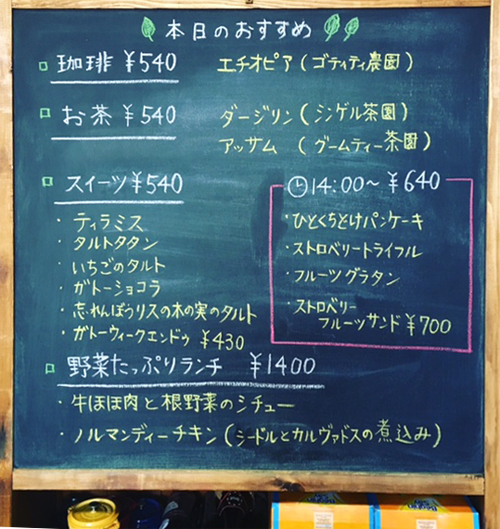 本日のおすすめ
珈琲 ¥540 エチオピア（ゴティティ農園）
お茶 ¥540 ダージリン（シンゲル茶園）
アッサム （グームティー茶園）
スイーツ ¥540
・ティラミス
・タルトタタン
・いちごのタルト
・ガトーショコラ
・忘れんぼうリスの木の実のタルト
・ガトーウィークエンドゥ ¥430
14:00〜 ¥640
・ひとくちとけパンケーキ
・ストロベリートライフル
・フルーツグラタン
・ストロベリー
フルーツサンド ¥700
野菜たっぷりランチ ¥1400
・牛ほほ肉と根野菜のシチュー
・ノルマンディーチキン（シードルとカルヴァドスの煮込み）